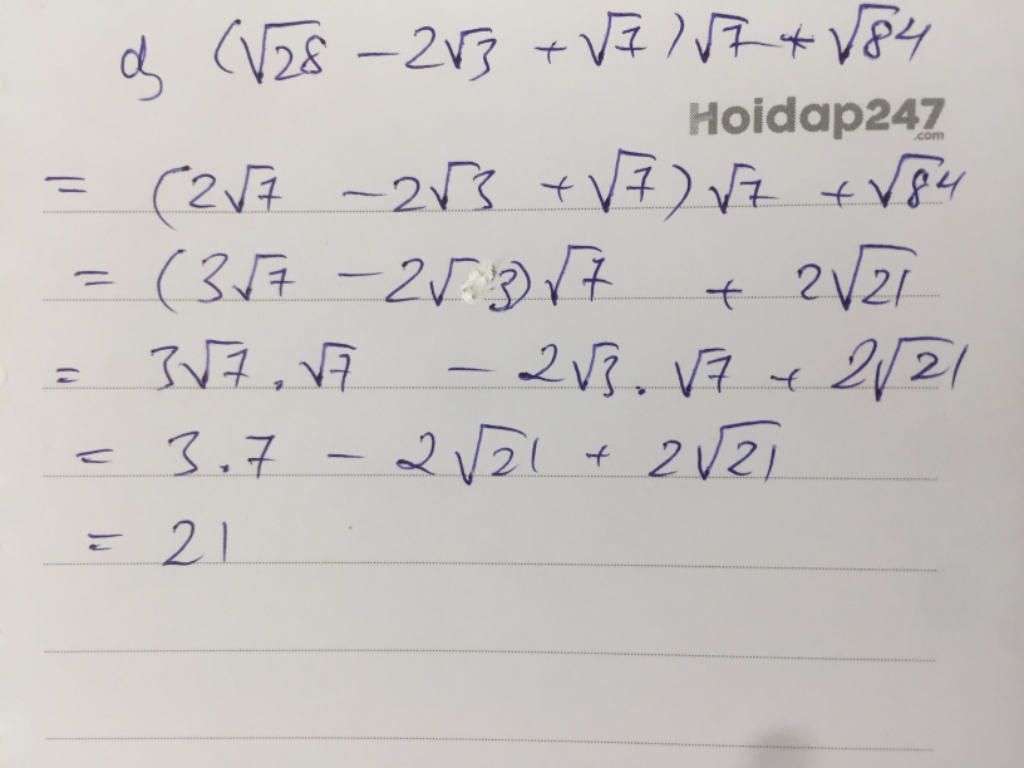 c) (√28 - 2√3 + √7)√7 + √84
Hoidap247
.com
= (2√7 - 2√3 + √7)√7 + √84
= (3√7 - 2√3)√7 + 2√21
= 3√7 . √7 - 2√3 . √7 + 2√21
= 3.7 - 2√21 + 2√21
= 21